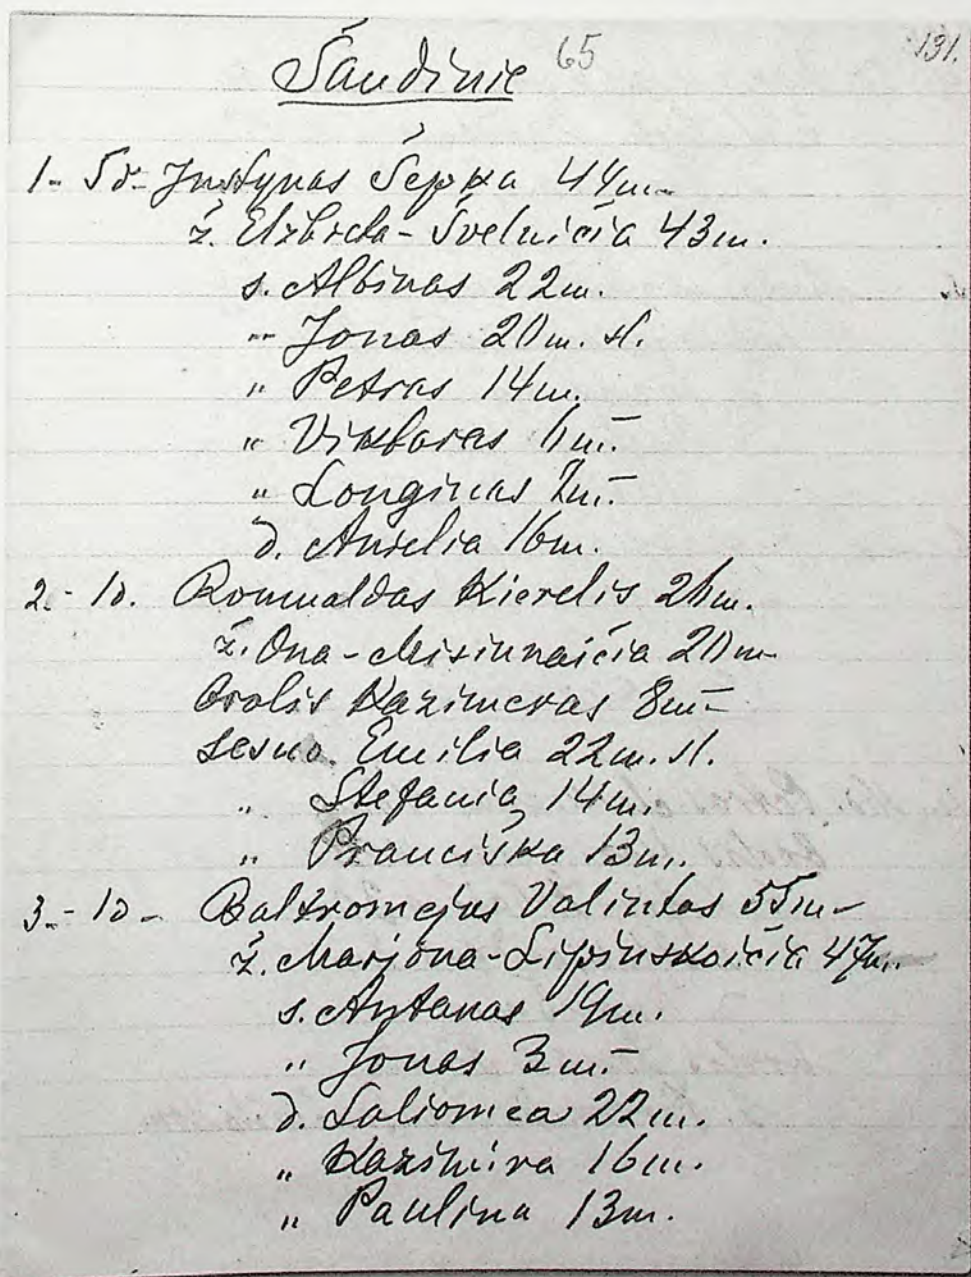 Šaudinie 65 131.
1- 5d- Justynas Šepka 44m-
ž. Elzbieta-Švelničia 43m.
s. Albinas 22m.
" Jonas 20m. sl.
" Petras 14m.
" Viktoras 11m.-
" Longinas 7m.-
d. Anielia 16m.
2.- 1d. Romualdas Kierelis 26m.
ž. Ona-Misiunaičia 20m-
Brolis Kazimeras 8m-
sesuo. Emilia 22m. sl.
" Stefania, 14m.
" Pranciška 13m.
3.- 1d- Baltromejus Valintas 55m-
ž. Marjona-Lipinskaičia 47m.
s. Antanas 19m.
" Jonas 3m.-
d. Saliomea 22m.
" Kazimira 16m.
" Paulina 13m.